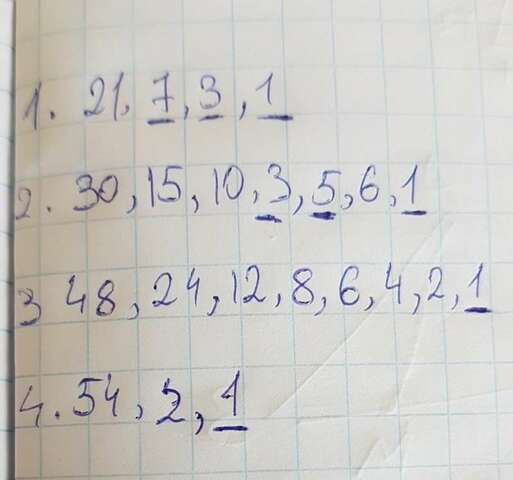 1. 21, 7, 3, 1
2. 30, 15, 10, 3, 5, 6, 1
3 48, 24, 12, 8, 6, 4, 2, 1
4. 54, 2, 1